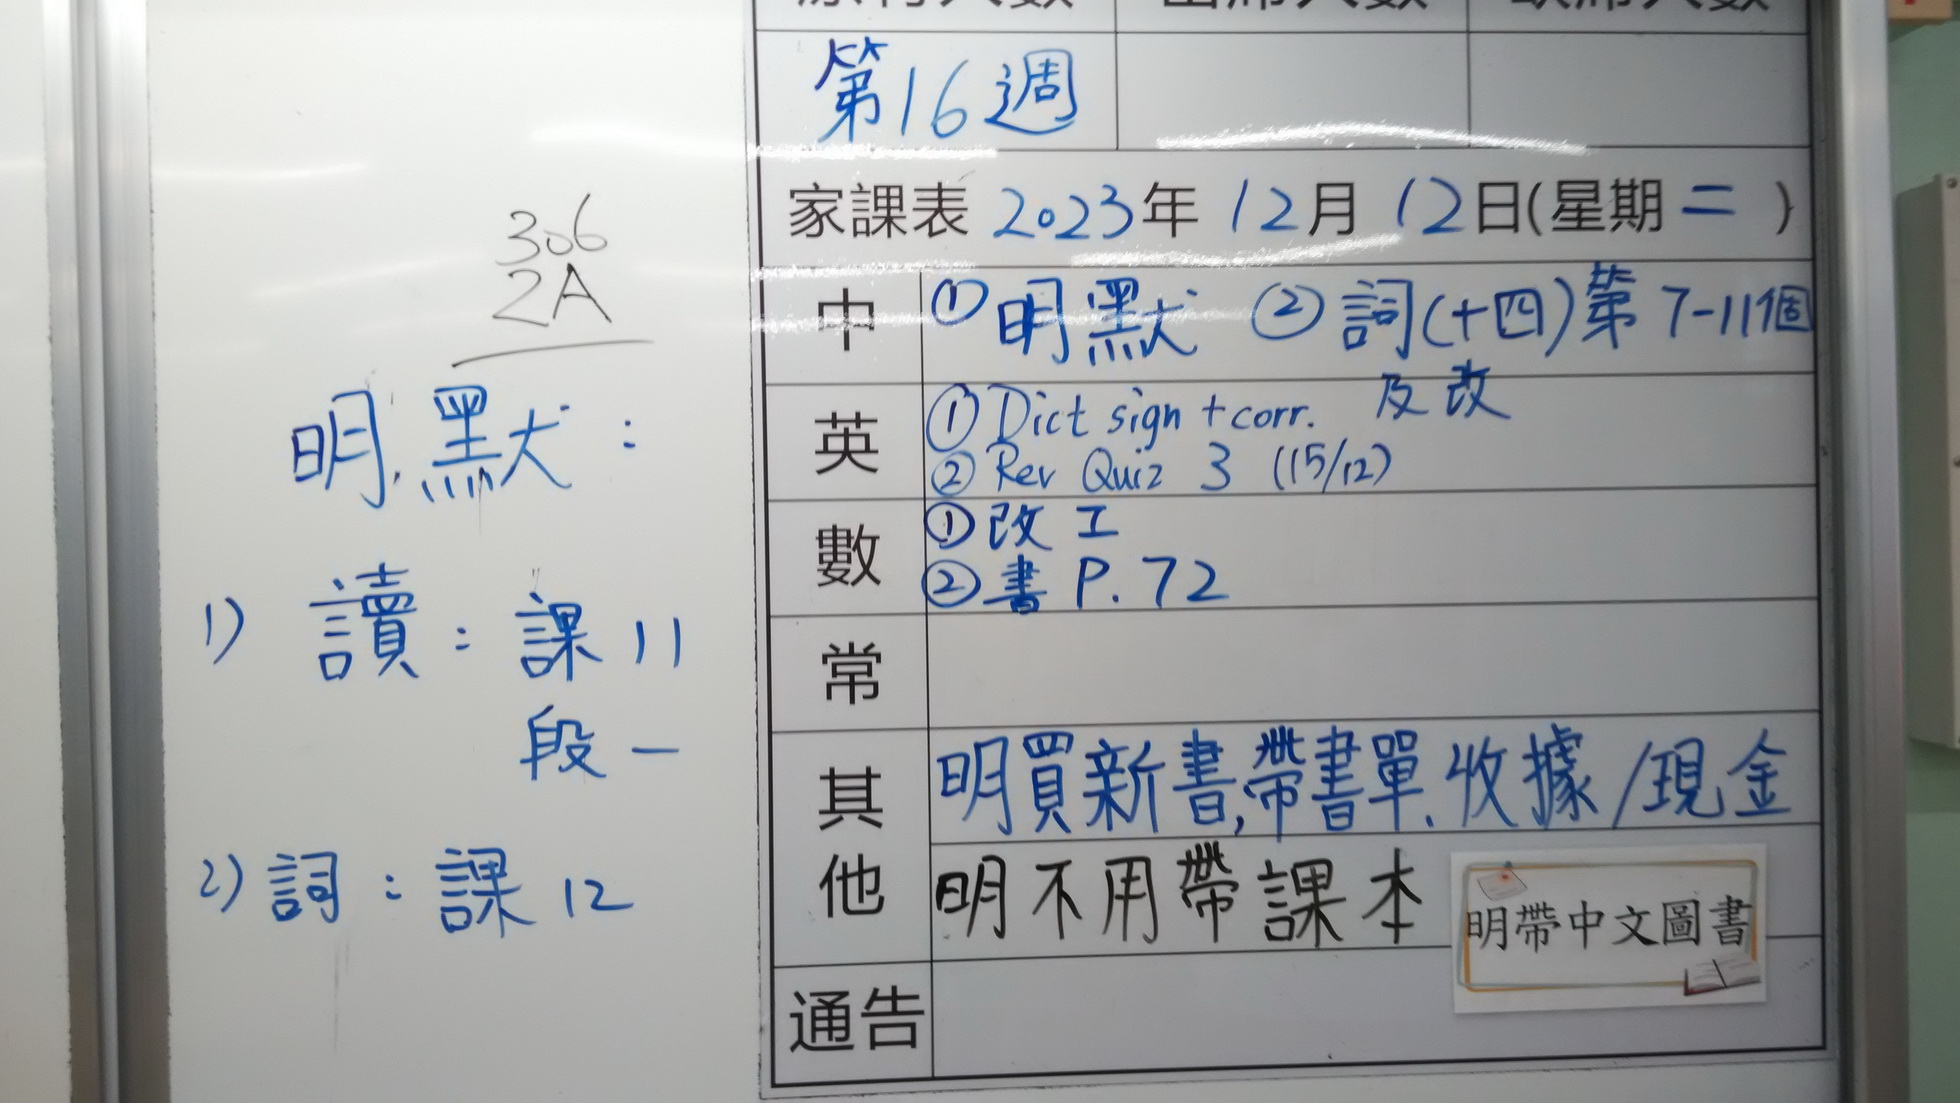 原有人數 出席人數 缺席人數
第16週
家課表 2023年 12月 12日(星期二)
306
2A
明默:
1) 讀:課11
段一
2) 詞:課12
中 ①明默 ②詞(十四)第7-11個
及改
英 ①Dict sign + corr.
②Rev Quiz 3 (15/12)
數 ①改工
②書 P.72
常
其他 明買新書,帶書單.收據/現金
明不用帶課本
明帶中文圖書
通告